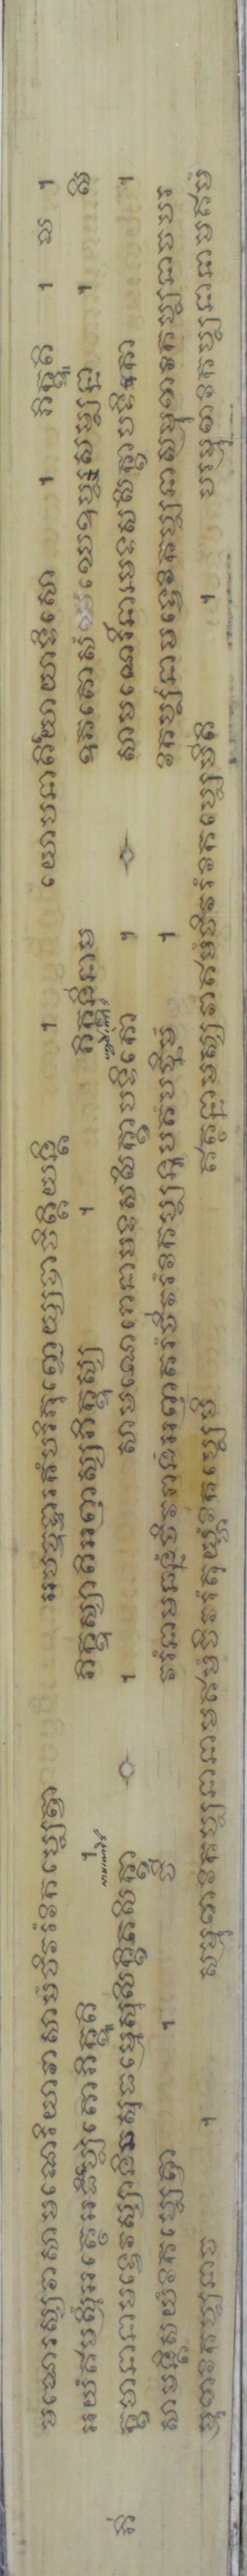 មណេរស្សវាសាមណេរិយាវាសាមំចីវរំវិកប្បេត្វា អបច្ចុទ្ធារកំបរិភុញ្ជេយ្យបាចិត្តិយន្តិ ។ យោបនាតិយោយាទិសោ ។ ភិក្ខូតិ ។ ល ។
អយំឥមស្មិំអត្ថេអធិប្បេតោភិក្ខូតិ ។ ភិក្ខុស្សាតិអញ្ញស្សភិក្ខុស្ស ។ ភិក្ខុនីនាម ឧភតោសំឃេឧបសម្បន្នា ។ សិ
ក្ខមានានាមទ្វេវស្សានិឆសុធម្មេសុសិក្ខិតសិក្ខា ។ សាមណេរោនាមទសសិក្ខាបទិកោ ។ សាមណេរីនាមទសសិក្ខាបទិកា ។
សាមន្តិសយំវិកប្បេត្វា ។ ចី វរំនាមឆន្នំចីវរានំអញ្ញតរំចីវរំវិកប្បនូបគំបច្ឆិមំ ។ វិកប្បនានាមទ្វេវិកប្បនាសម្មុខាវិកប្បនាចបរ
ម្មុខាវិកប្បនាច ។ សម្មុខាវិកប្បនានាមឥមំចីវរំតុយ្ហំវិកប្បេមិ ឥត្ថន្នាមស្សវាឥមំចីវរំវិកប្បេមីតិ ។ បរម្មុខាវិកប្បនានាមឥមំ